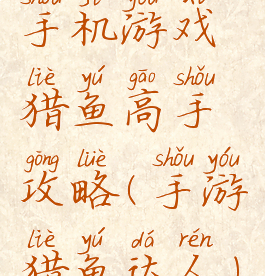 shǒu jī yóu xì
手机游戏
liè yú gāo shǒu
猎鱼高手
gōng lüè shǒu yóu
攻略(手游
liè yú dá rén
猎鱼达人)